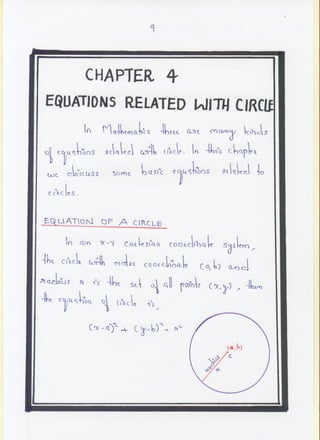 9
CHAPTER 4
EQUATIONS RELATED WITH CIRCLE
In Mathematics there are many kinds
of equations related with circle. In this chapter
we discuss some basic equations related to
circles.
EQUATION OF A CIRCLE
In an x-y cartesian coordinate system,
the circle with centre coordinate (a,b) and
radius r is the set of all points (x,y), then
the equation of circle is,
(x-a)² + (y-b)² = r²
(a,b)
c
radius
r